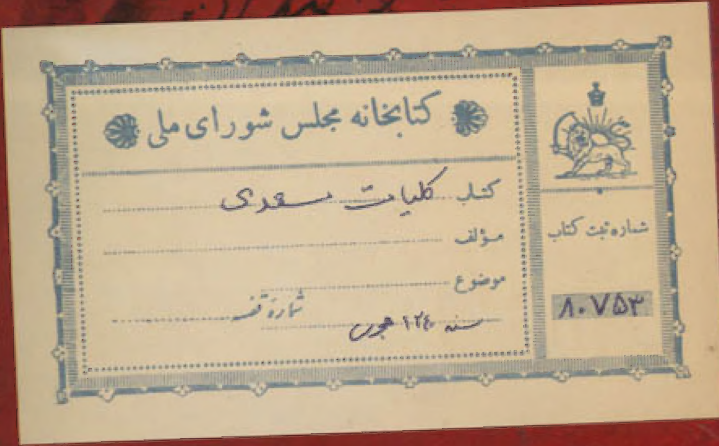 کتابخانه مجلس شورای ملی
کتاب کلیات سعدی
مؤلف
موضوع
شمارهٔ قفسه
سنه ۱۲۴۰ هجری
شماره ثبت کتاب
۸۰۷۵۳